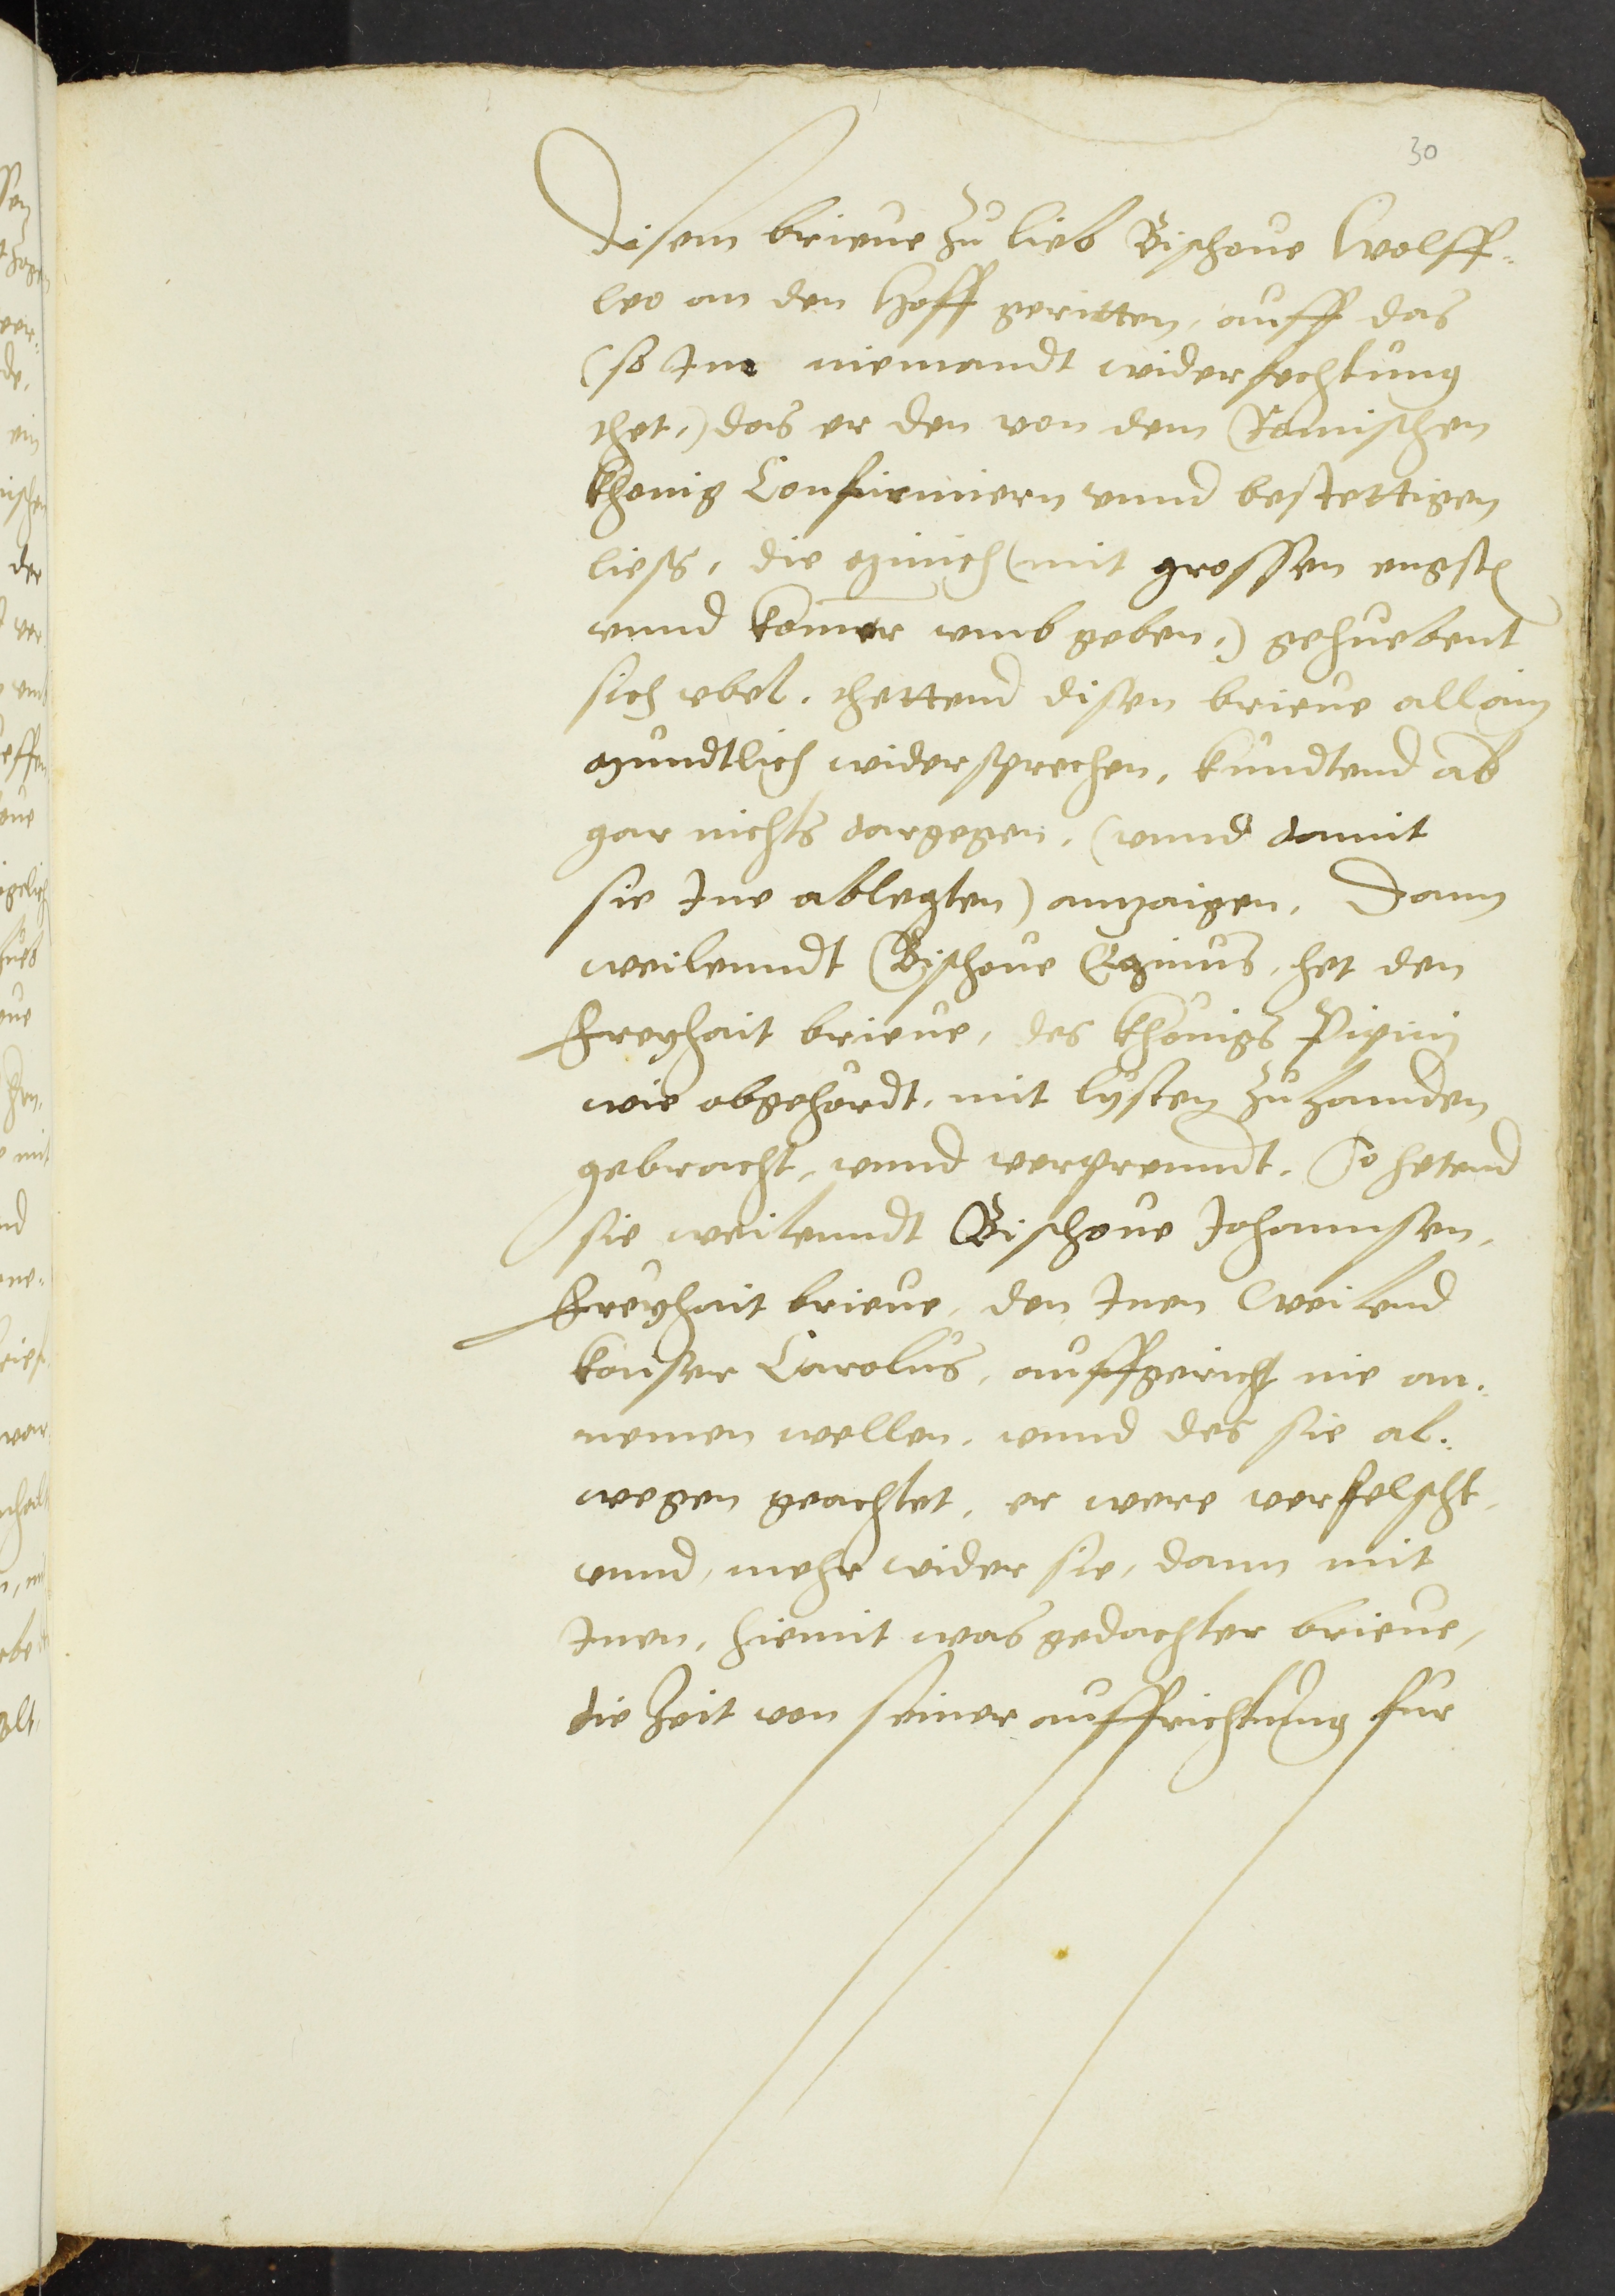 30
disem brieue zu lieb Bischoue Wolff-
leo an den Hoff geritten, auff das
(so Ine niemandt widerfechtung
thet,) das er den von dem Römischen
Khönig Confirmiern vnnd bestettigen
liess, die münich (mit grossen engsten
vnnd komer vmbgeben,) gehuebent
sich vbel, thettend disen brieue allain
mundtlich widersprechen, kundtend ab
gar nichts dargegen, (vnnd damit
sie Ine ablegten) anzaigen, Dann
weilenndt Bischoue Eginus, het den
Freyhait brieue, des Khönigs Pipini
wie obgehördt, mit lysten zuhannden
gebracht, vnnd verprenndt, So hetend
sie weilenndt Bischoue Johannsen,
Freyhait brieue, den Inen Weilend
Kaiser Carolus, auffgericht nie an-
nemen wellen, vnnd des sie al-
wegen geachtet, er were verfelscht,
vnnd, mehr wider sie, dann mit
Inen, hiemit was gedachter brieue,
die Zeit von seiner auffrichtung fur